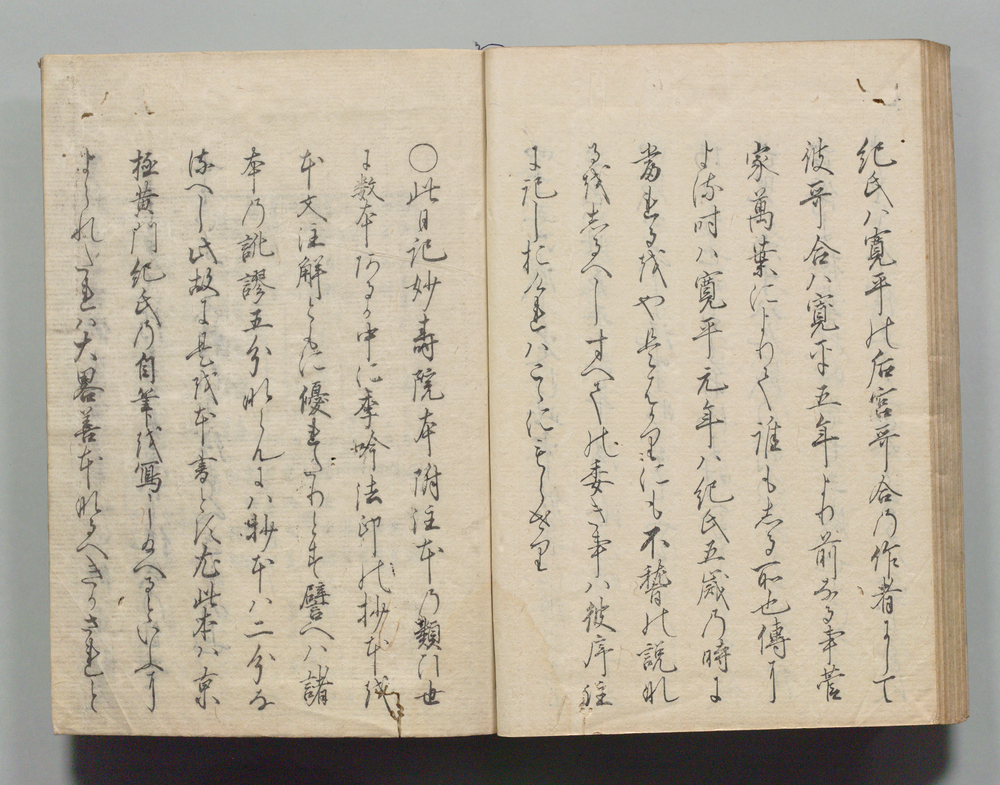 紀氏ハ寛平の后宮哥合の作者にして
彼哥合ハ寛平五年より前なる事菅
家萬葉によりて誰もしる所也傳に
よる時ハ寛平元年ハ紀氏五歳の時に
當れるをや是はさりにも不稽の説な
るをしるへしすへての委き事ハ彼序注
に記しおけれハこゝにもらせり
〇此日記妙壽院本附注本の類ひ世
に数本ある中に季吟法印の抄本を
本文注解ともに優れたりとす譬へハ諸
本の訛謬五分ならんにハ抄本ハ二分な
るへし此故に是を本書とす尤此本ハ京
極黄門紀氏の自筆を寫し給へるといふに
よられたれハ大畧善本なるへきかされと